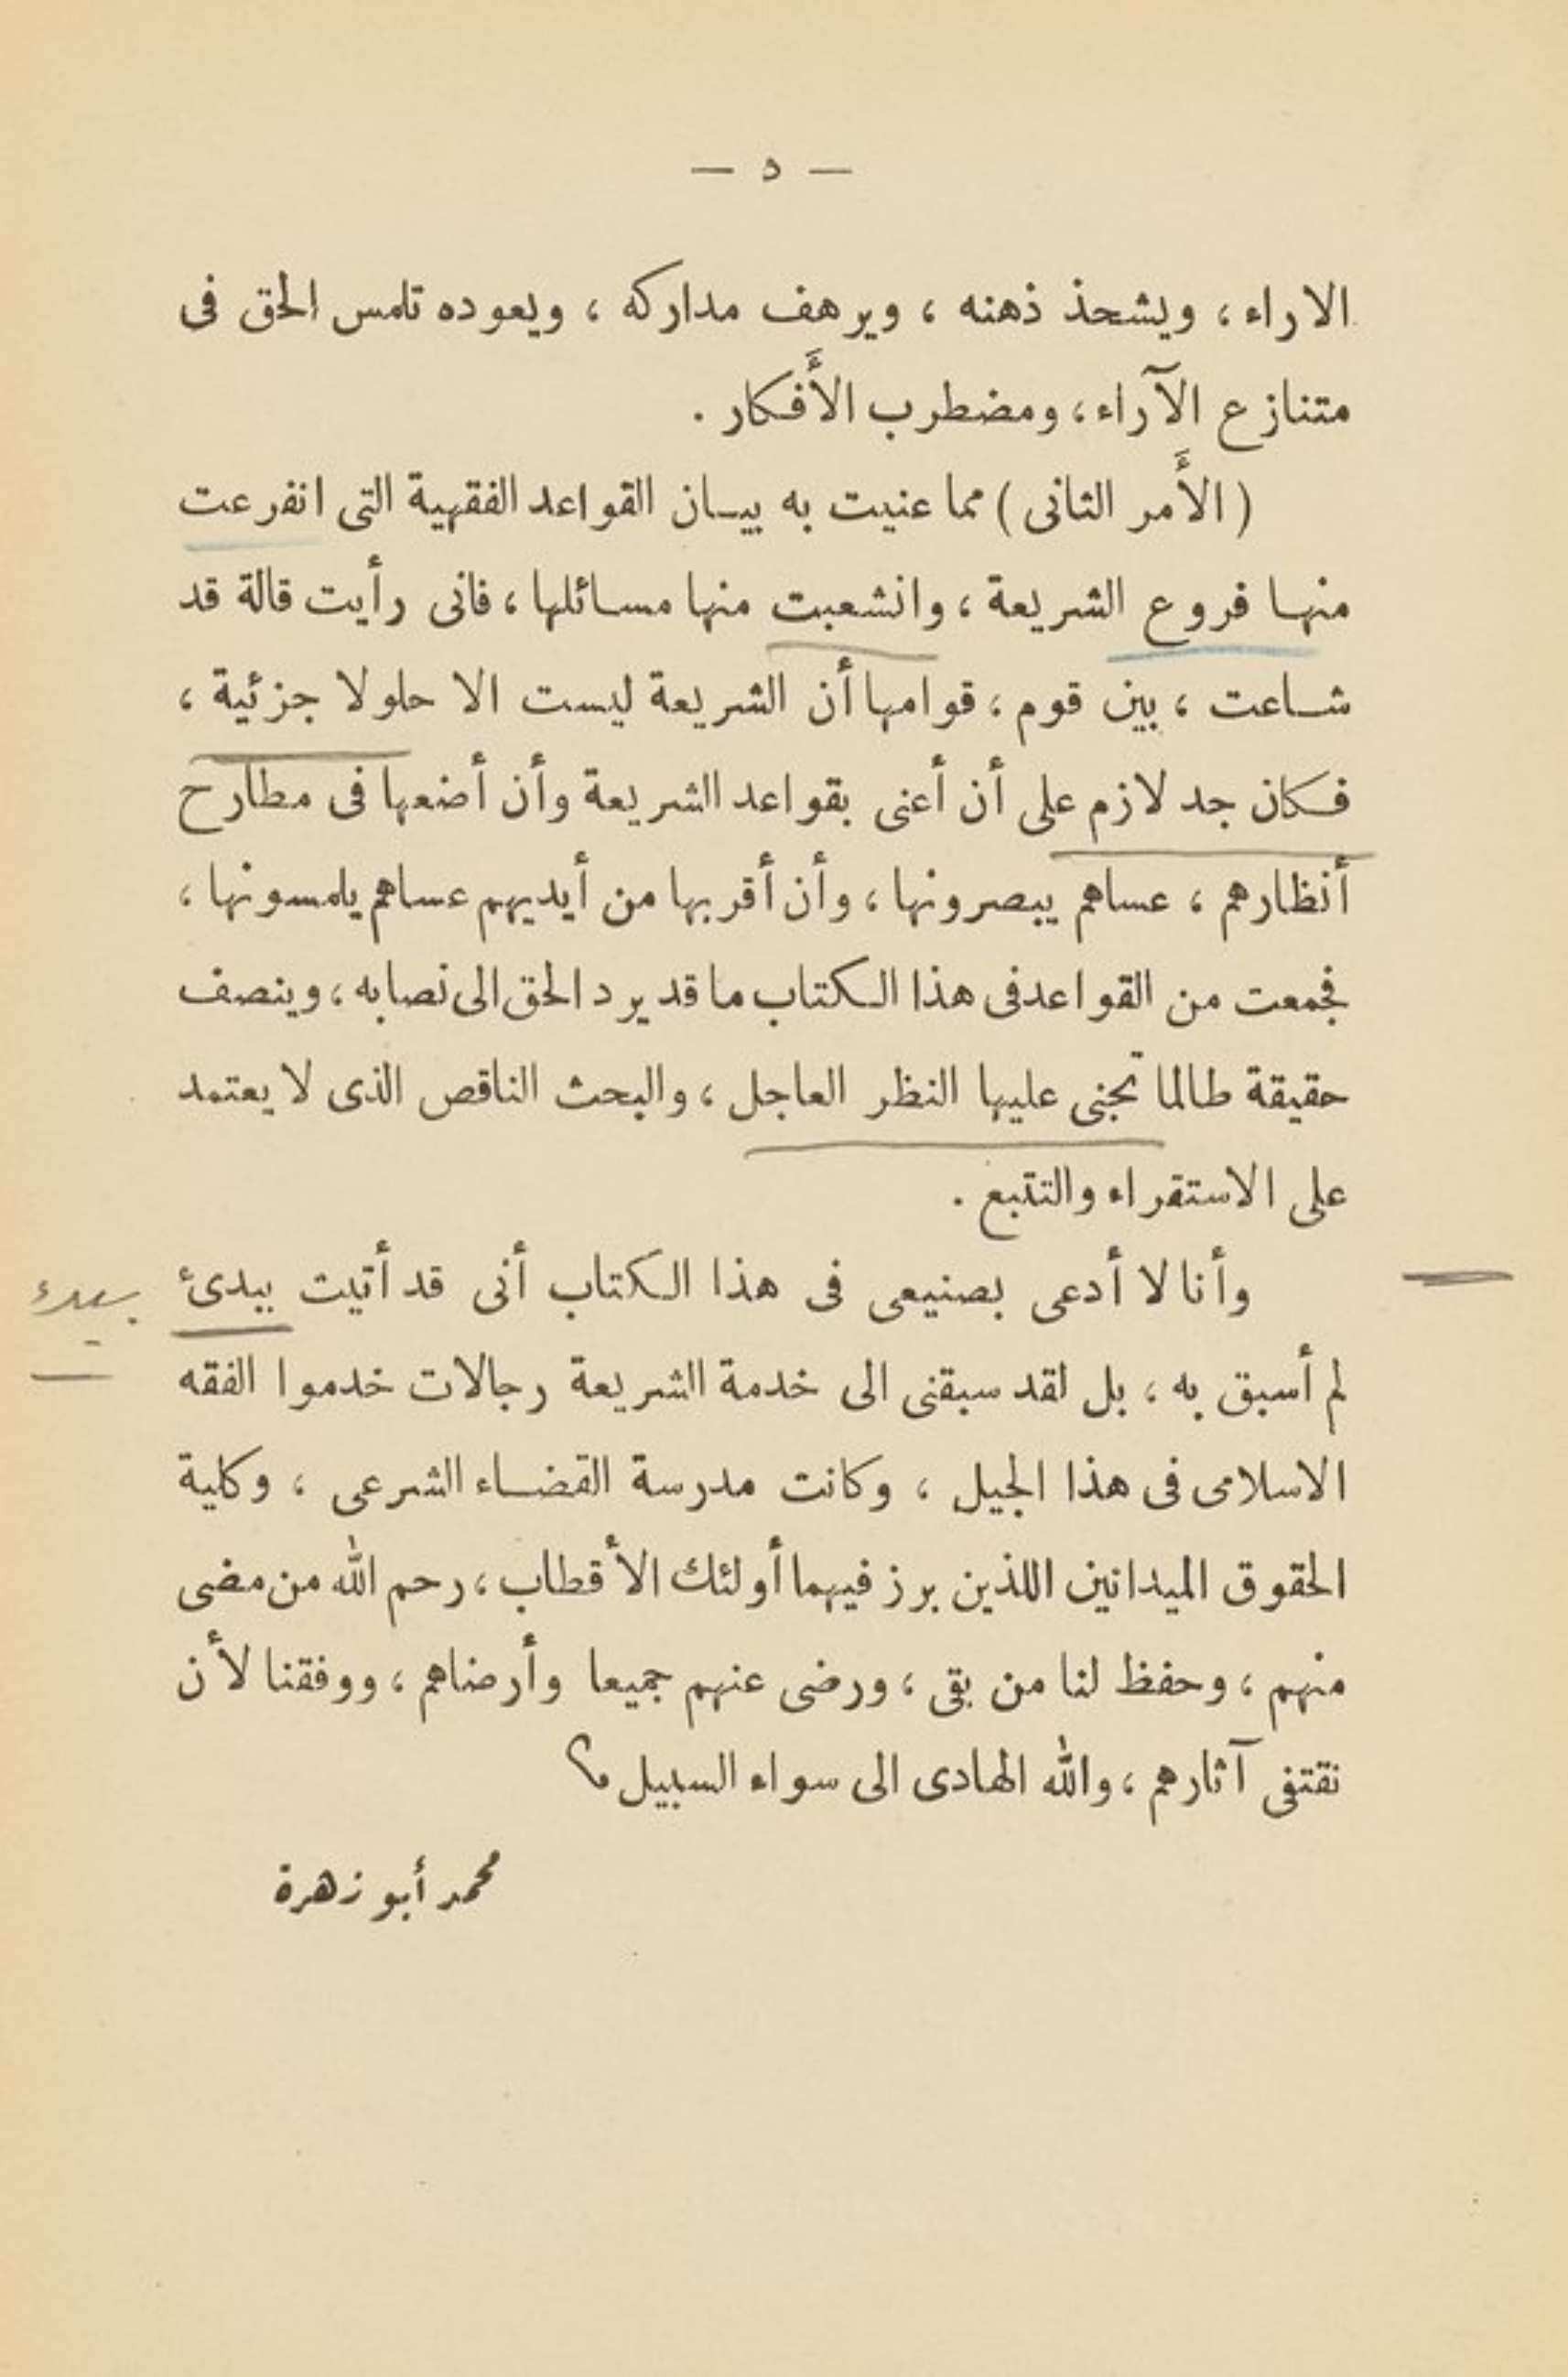 — ٥ —
الاراء ، ويشحذ ذهنه ، ويرهف مداركه ، ويعوده تلمس الحق فى
متنازع الآراء ، ومضطرب الأَفكار .
( الأَمر الثانى ) مما عنيت به بيان القواعد الفقهية التى انفرعت
منها فروع الشريعة ، وانشعبت منها مسائلها ، فانى رأيت قالة قد
شاعت ، بين قوم ، قوامها أن الشريعة ليست الا حلولا جزئية ،
فكان جد لازم على أن أعنى بقواعد الشريعة وأن أضعها فى مطارح
أنظارهم ، عساهم يبصرونها ، وأن أقربها من أيديهم عساهم يلمسونها ،
فجمعت من القواعد فى هذا الكتاب ما قد يرد الحق الى نصابه ، وينصف
حقيقة طالما تجنى عليها النظر العاجل ، والبحث الناقص الذى لا يعتمد
على الاستقراء والتتبع .
وأنا لا أدعى بصنيعى فى هذا الكتاب أنى قد أتيت ببدىء
لم أسبق به ، بل لقد سبقنى الى خدمة الشريعة رجالات خدموا الفقه
الاسلامى فى هذا الجيل ، وكانت مدرسة القضاء الشرعى ، وكلية
الحقوق الميدانين اللذين برز فيهما أولئك الأقطاب ، رحم الله من مضى
منهم ، وحفظ لنا من بقى ، ورضى عنهم جميعا وأرضاهم ، ووفقنا لأن
نقتفى آثارهم ، والله الهادى الى سواء السبيل
محمد أبو زهرة